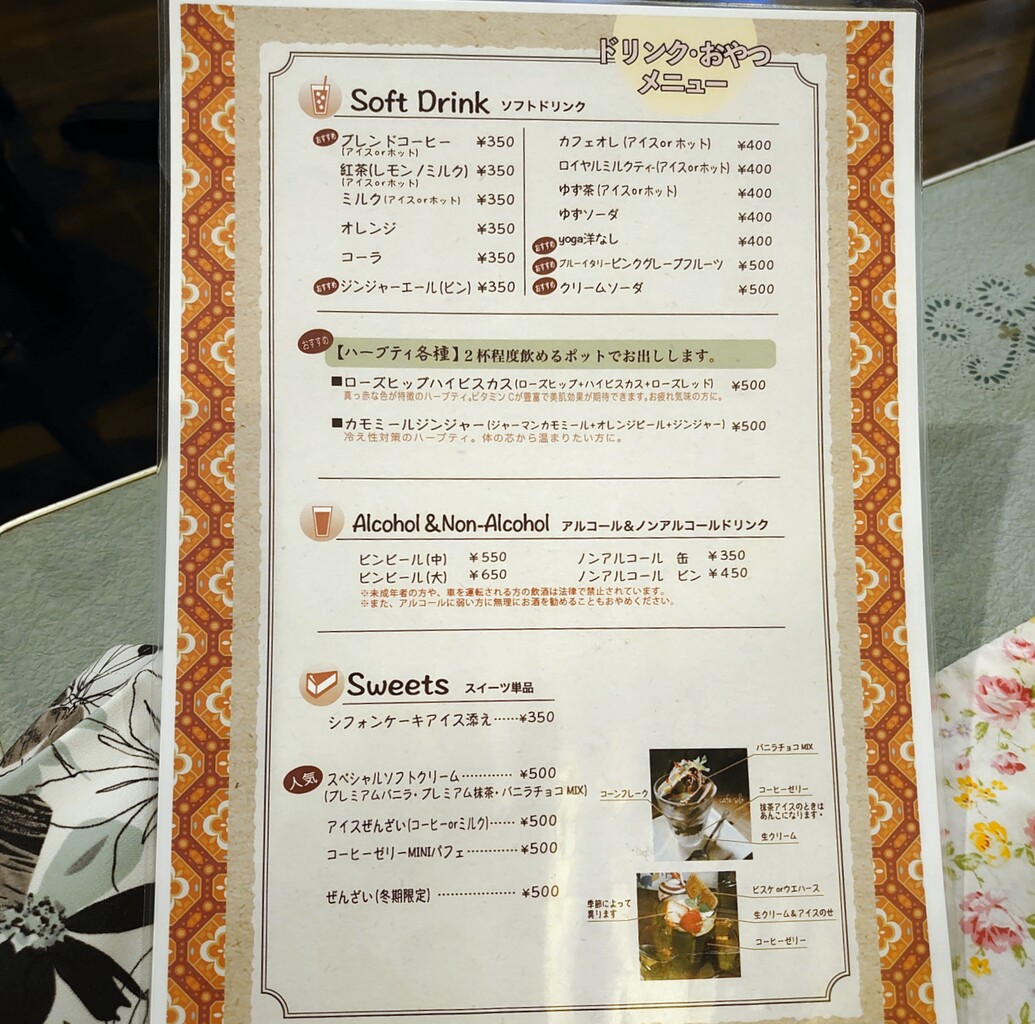 ドリンク・おやつ
メニュー
Soft Drink ソフトドリンク
おすすめ ブレンドコーヒー ¥350
(アイスorホット)
紅茶(レモン/ミルク) ¥350
(アイスorホット)
ミルク(アイスorホット) ¥350
オレンジ ¥350
コーラ ¥350
おすすめ ジンジャーエール(ビン) ¥350
カフェオレ(アイスorホット) ¥400
ロイヤルミルクティ-(アイスorホット) ¥400
ゆず茶(アイスorホット) ¥400
ゆずソーダ ¥400
おすすめ yoga洋なし ¥400
おすすめ ブルーイタリーピンクグレープフルーツ ¥500
おすすめ クリームソーダ ¥500
おすすめ 【ハーブティ各種】2杯程度飲めるポットでお出しします。
■ローズヒップハイビスカス(ローズヒップ+ハイビスカス+ローズレッド) ¥500
真っ赤な色が特徴のハーブティ。ビタミンCが豊富で美肌効果が期待できます。お疲れ気味の方に。
■カモミールジンジャー(ジャーマンカモミール+オレンジピール+ジンジャー) ¥500
冷え性対策のハーブティ。体の芯から温まりたい方に。
Alcohol &Non-Alcohol アルコール&ノンアルコールドリンク
ビンビール(中) ¥550
ビンビール(大) ¥650
ノンアルコール 缶 ¥350
ノンアルコール ビン ¥450
※未成年者の方や、車を運転される方の飲酒は法律で禁止されています。
※また、アルコールに弱い方に無理にお酒を勧めることもおやめください。
Sweets スイーツ単品
シフォンケーキアイス添え……¥350
人気 スペシャルソフトクリーム………… ¥500
(プレミアムバニラ・プレミアム抹茶・バニラチョコMIX)
アイスぜんざい(コーヒーorミルク)……¥500
コーヒーゼリーMINIパフェ…………¥500
ぜんざい(冬期限定) ……………… ¥500
バニラチョコMIX
コーンフレーク
コーヒーゼリー
抹茶アイスのときは
あんこになります・
生クリーム
ビスケorウエハース
季節によって
異ります
生クリーム&アイスのせ
コーヒーゼリー